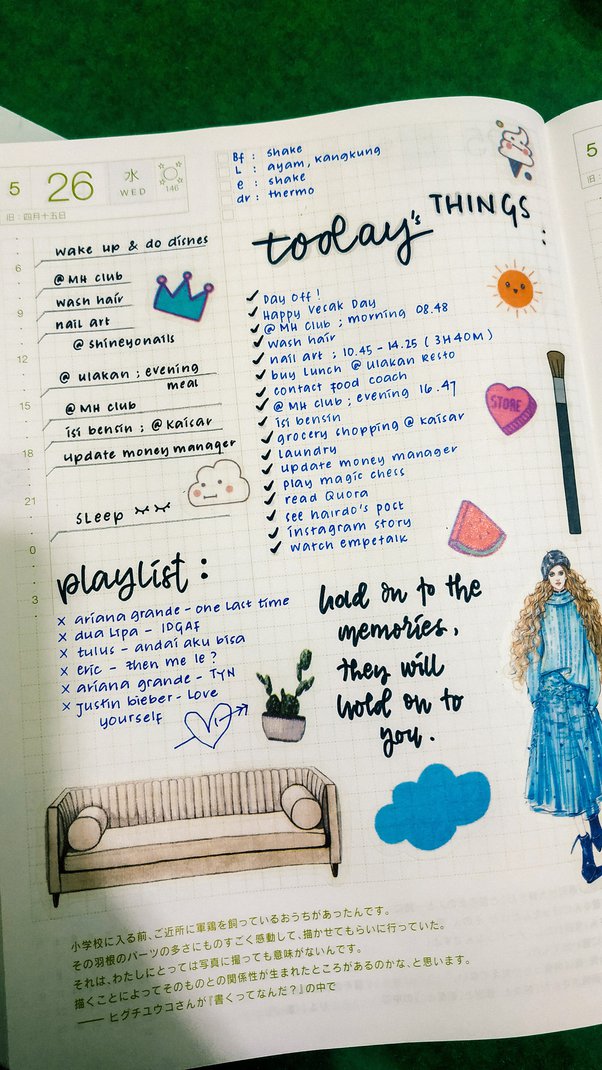 5 26 水 WED 146
旧：四月十五日
Bf : shake
L : ayam, kangkung
e : shake
dr : thermo
today's THINGS :
6
9
12
15
18
21
0
3
wake up & do dishes
@ MH club
wash hair
nail art
@ shineyonails
@ ulakan ; evening
meal
@ MH club
isi bensin ; @ Kaisar
update money manager
sleep
✓ Day Off !
✓ Happy Vesak Day
✓ @ MH club ; morning 08.48
✓ wash hair
✓ nail art ; 10.45 - 14.25 ( 3H 40M )
✓ buy lunch @ ulakan Resto
✓ contact food coach
✓ @ MH club ; evening 16.47
✓ isi bensin
✓ grocery shopping @ Kaisar
✓ laundry
✓ update money manager
✓ play magic chess
✓ read Quora
✓ see hairdo's post
✓ instagram story
✓ watch empetalk
STORE
playlist :
x ariana grande - one last time
x dua lipa - IDGAF
x tulus - andai aku bisa
x eric - then me le ?
x ariana grande - TYN
x justin bieber - Love
yourself
hold on to the
memories,
they will
hold on to
you.
小学校に入る前、ご近所に軍鶏を飼っているおうちがあったんです。
その羽根のパーツの多さにものすごく感動して、描かせてもらいに行っていた。
それは、わたしにとっては写真に撮っても意味がないんです。
描くことによってそのものとの関係性が生まれたところがあるのかな、と思います。
── ヒグチユウコさんが『書くってなんだ？』の中で
5